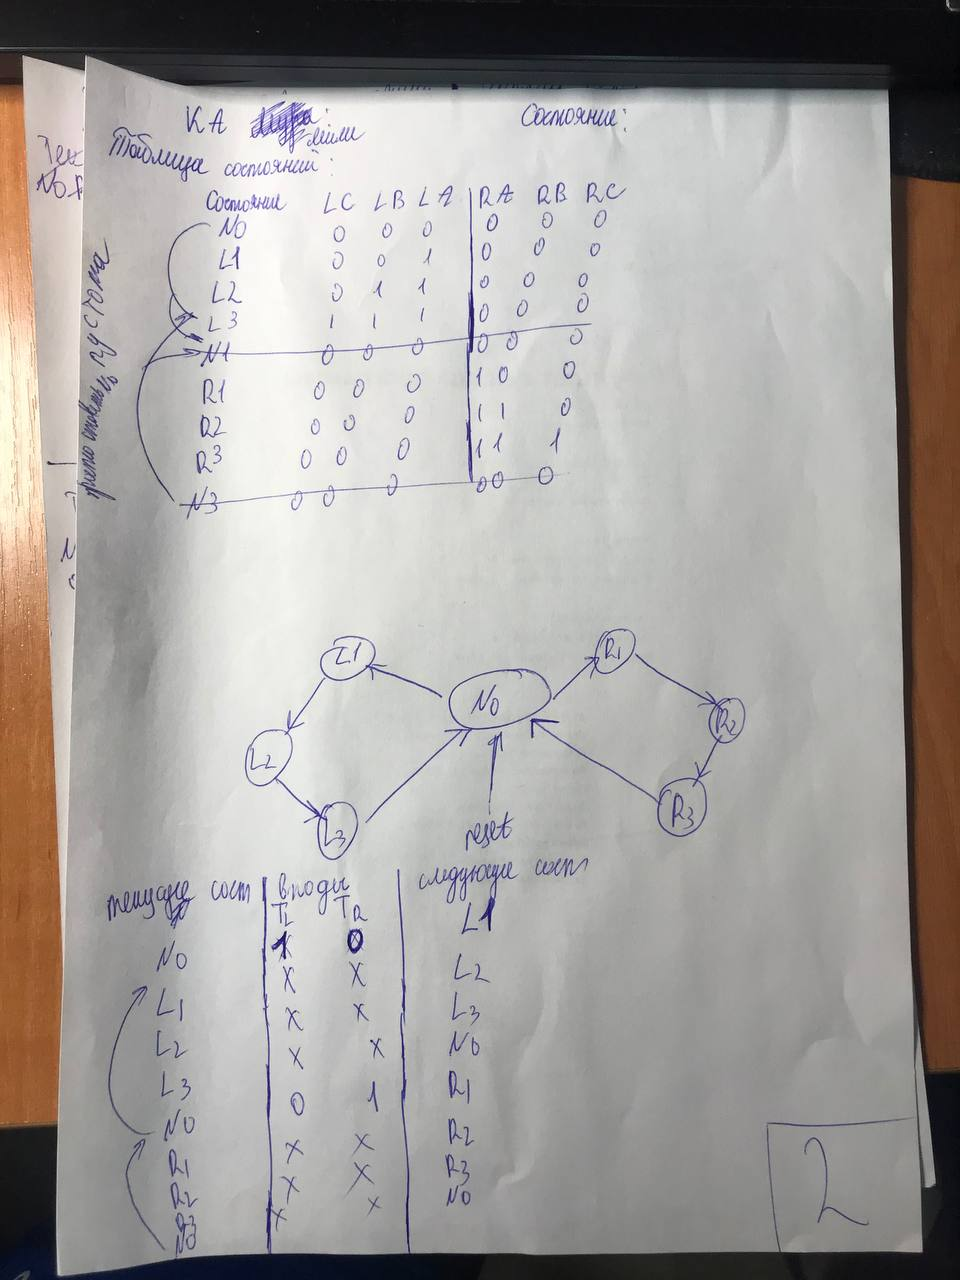 КА Мили:
Состояние:
Таблица состояний:
Состояние LC LB LA RA RB RC
N0 0 0 0 0 0 0
L1 0 0 1 0 0 0
L2 0 1 1 0 0 0
L3 1 1 1 0 0 0
N1 0 0 0 0 0 0
R1 0 0 0 1 0 0
R2 0 0 0 1 1 0
R3 0 0 0 1 1 1
N3 0 0 0 0 0 0
L1
N0
R1
L2
R2
L3
R3
reset
текущее сост входы следующее сост
TL TR
N0 1 0 L1
L1 X X L2
L2 X X L3
L3 X X N0
N0 0 1 R1
R1 X X R2
R2 X X R3
R3 X X N0
N0
2